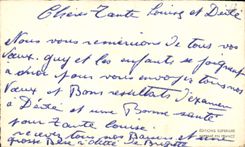 Chère Tante Louise et Dédé
Nous vous remercions de tous vos
Vœux. Guy et les enfants se joignent
à moi pour vous envoyer tous nos
Vœux et Bons résultats d'examen
à Dédé et une Bonne santé
pour Tante Louise.
recevez tous nos Baisers et une
grosse Bise à Dédé de Brigitte